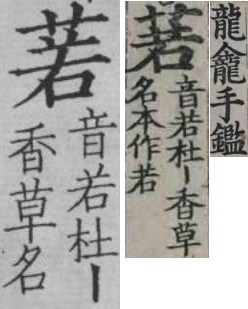 龍龕手鑑
音若杜丨香草
名本作若
音若杜丨
香草名